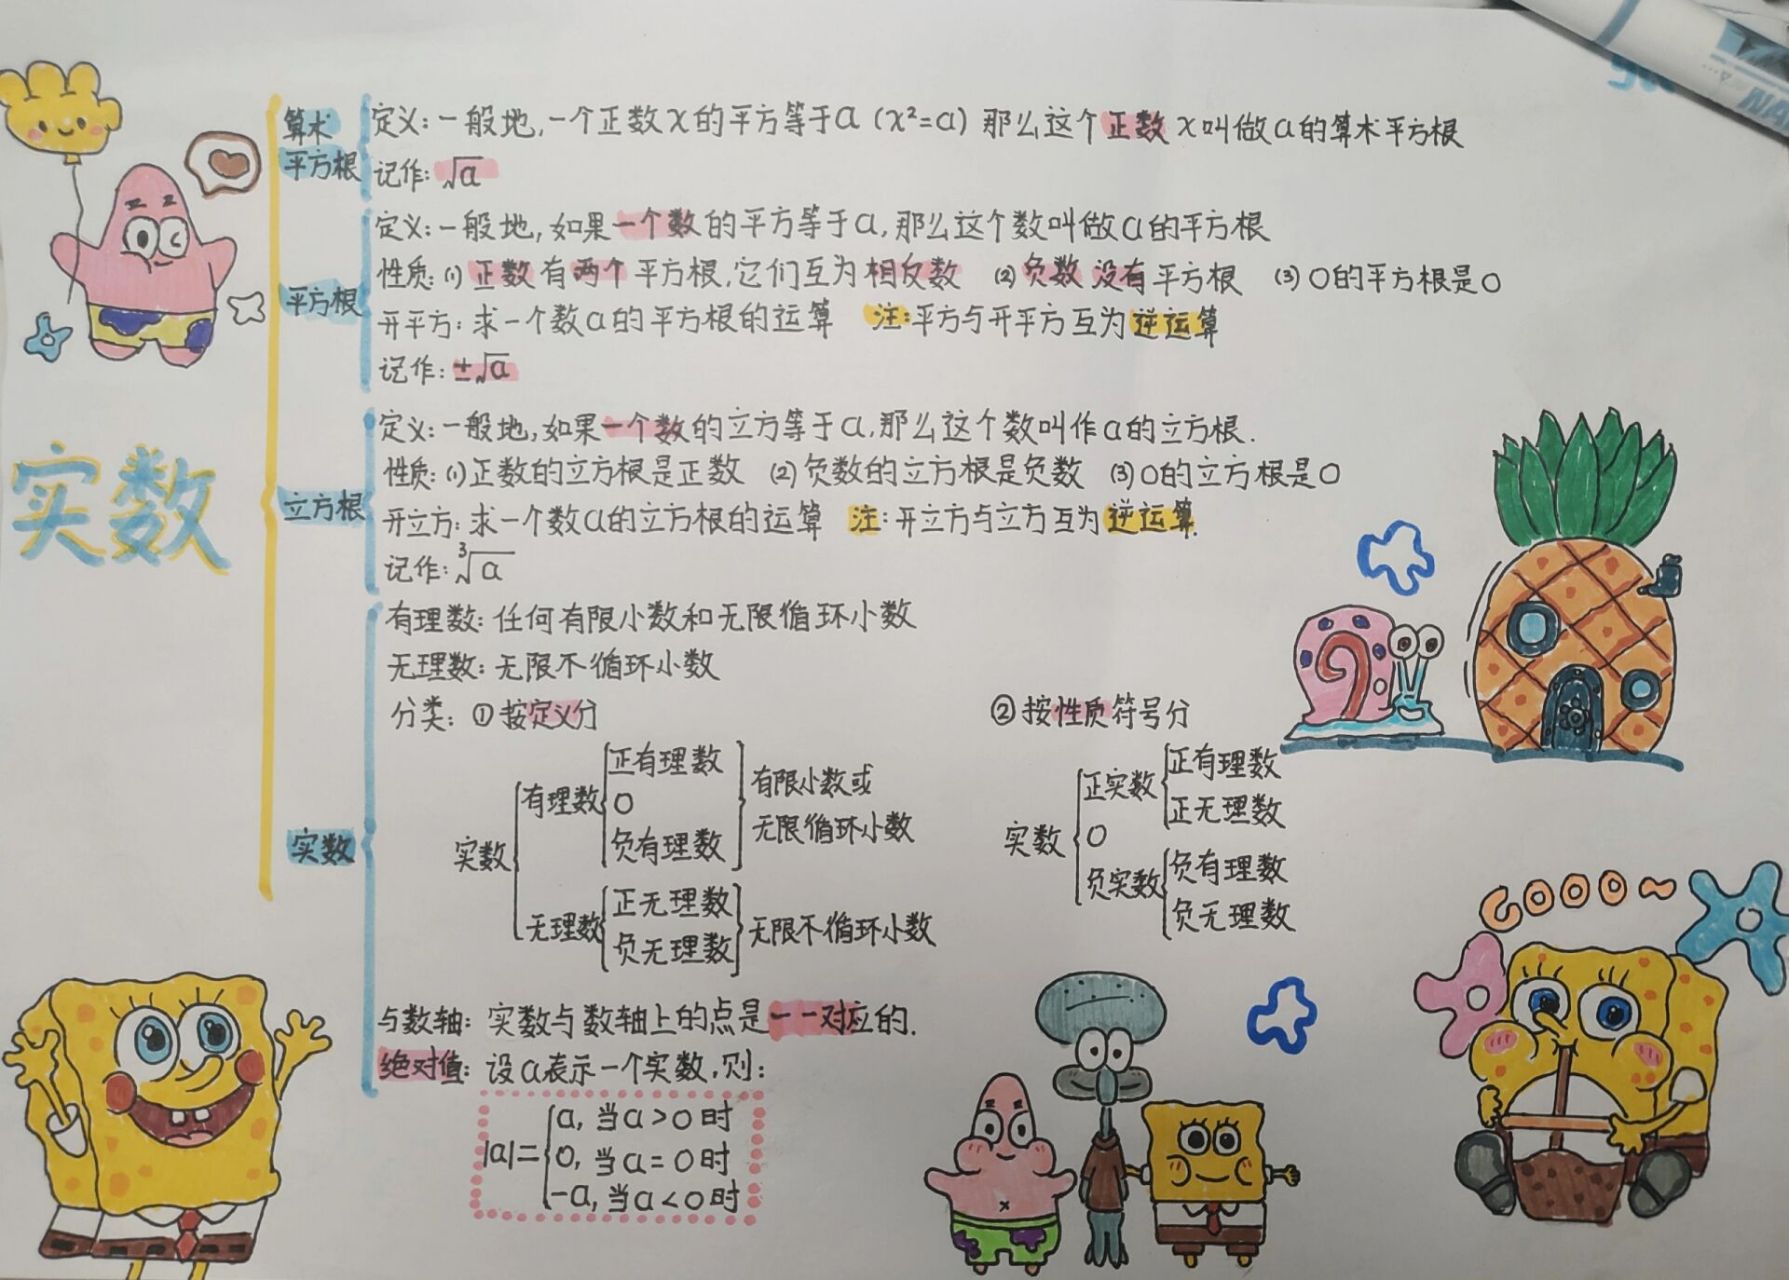 实数
算术
平方根
定义:一般地,一个正数x的平方等于a (x²=a) 那么这个正数x叫做a的算术平方根
记作: √a
平方根
定义:一般地,如果一个数的平方等于a,那么这个数叫做a的平方根
性质:(1)正数有两个平方根,它们互为相反数 (2)负数没有平方根 (3)0的平方根是0
开平方:求一个数a的平方根的运算 注:平方与开平方互为逆运算
记作:±√a
立方根
定义:一般地,如果一个数的立方等于a,那么这个数叫作a的立方根.
性质:(1)正数的立方根是正数 (2)负数的立方根是负数 (3)0的立方根是0
开立方:求一个数a的立方根的运算 注:开立方与立方互为逆运算.
记作:³√a
实数
有理数:任何有限小数和无限循环小数
无理数:无限不循环小数
分类:①按定义分
实数
有理数
正有理数
0
负有理数
有限小数或
无限循环小数
无理数
正无理数
负无理数
无限不循环小数
②按性质符号分
实数
正实数
正有理数
正无理数
0
负实数
负有理数
负无理数
与数轴:实数与数轴上的点是一一对应的.
绝对值:设a表示一个实数,则:
|a|=
a,当a>0时
0,当a=0时
-a,当a<0时
COOO~